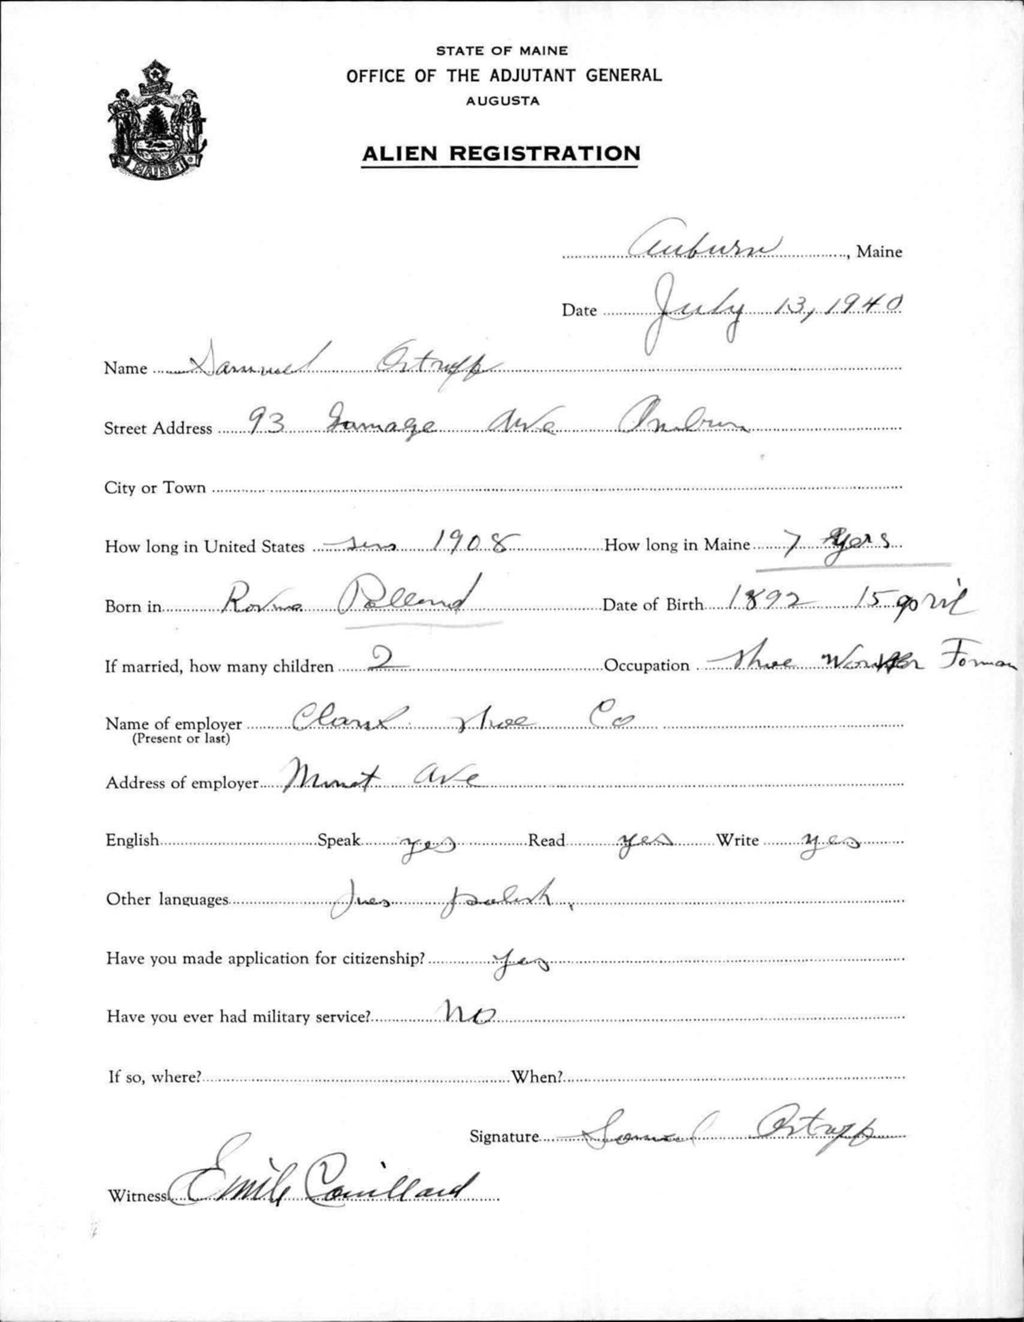 STATE OF MAINE
OFFICE OF THE ADJUTANT GENERAL
AUGUSTA
ALIEN REGISTRATION
MAINE
Auburn, Maine
Date July 13, 1940
Name Samuel
Street Address 93 Gamage Ave Auburn
City or Town
How long in United States sins 1908 How long in Maine 7 yers
Born in Polland Date of Birth 1892 15 april
If married, how many children 2 Occupation Shoe Worker Forman
Name of employer Clark Shoe Co
(Present or last)
Address of employer Minot Ave
English Speak yes Read yes Write yes
Other languages Jues polish,
Have you made application for citizenship? yes
Have you ever had military service? no
If so, where? When?
Signature Samuel
Witness Emile Couillard